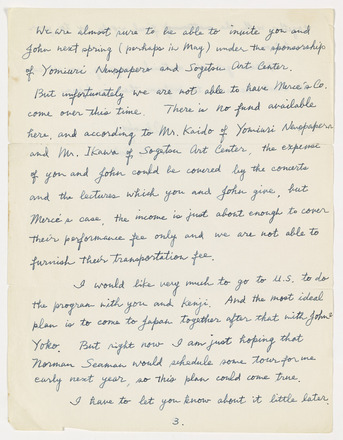 We are almost sure to be able to invite you and
John next spring (perhaps in May) under the sponsorship
of Yomiuri Newspapers and Sogitsu Art Center.
But unfortunately we are not able to have Merce's Co.
come over this time. There is no fund available
here, and according to Mr. Kaido of Yomiuri Newspapers
and Mr. Ikawa of Sogetsu Art Center, the expense
of you and John could be covered by the concerts
and the lectures which you and John give, but
Merce's case, the income is just about enough to cover
their performance fee only and we are not able to
furnish their Transportation fee.
I would like very much to go to U.S. to do
the program with you and Kenji. And the most ideal
plan is to come to Japan together after that with John &
Yoko. But right now I am just hoping that
Norman Seaman would schedule some tour for me
early next year, so this plan could come true.
I have to let you know about it little later.
3.